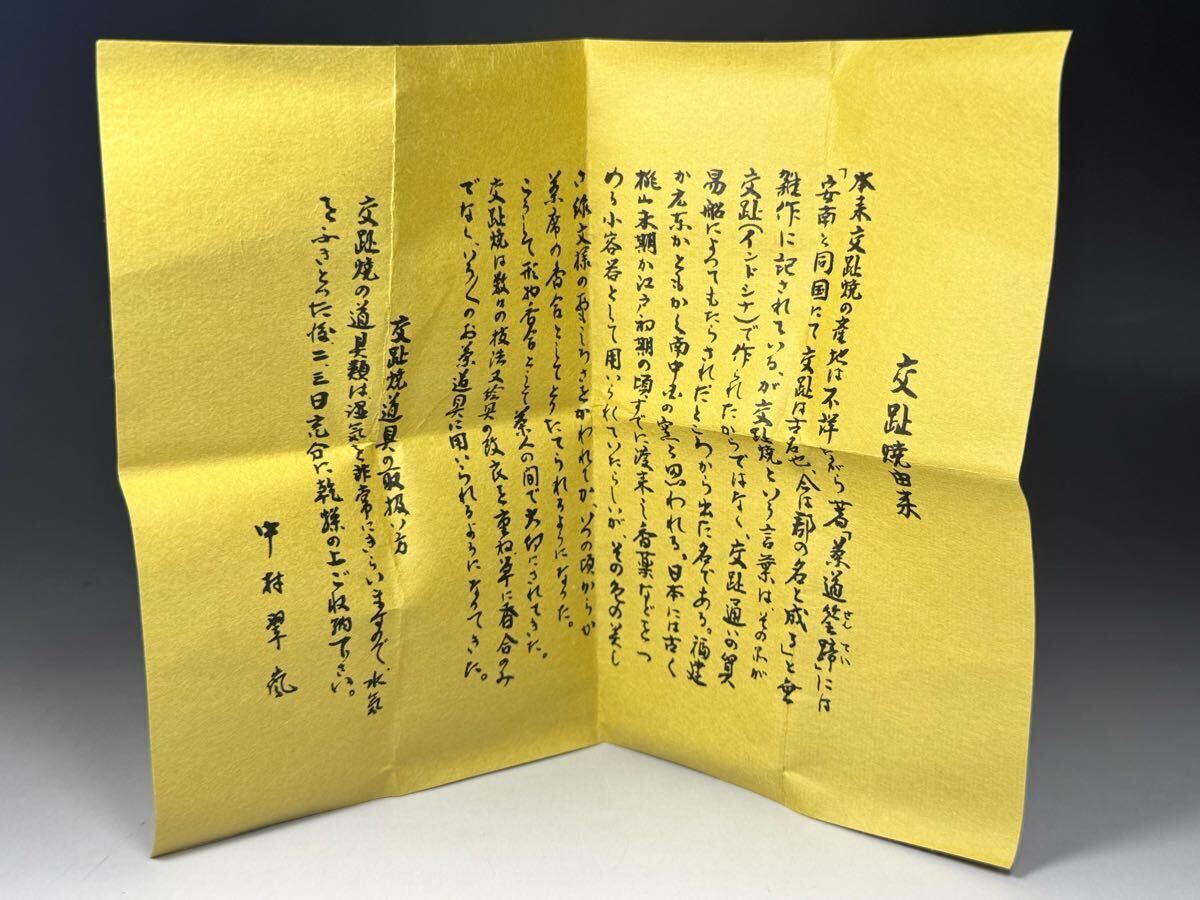 交趾焼由来
本来交趾焼の産地は不詳ながら著「茶道筌蹄」には
せんてい
「安南と同国にて交趾は古名也、今は郡の名と成る」と無
雑作に記されている、が交趾焼という言葉は、その品が
交趾(インドシナ)で作られたからではなく、交趾通いの貿
易船によってもたらされたところから出た名である。福建
か広東かともかく南中国の窯と思われる。日本には古く
桃山末期か江戸初期の頃すでに渡来し香薬などをつ
める小容器として用いられていたらしいが、その色の美し
さ、文様のおもしろさをかわれてか、その頃からか
茶席の香合としてとりたてられるようになった。
こうして形物香合として茶人の間で大切にされてきた。
交趾焼は数々の技法又絵具の改良を重ね単に香合のみ
でなく、いろくのお茶道具に用いられるようになってきた。
交趾焼道具の取扱い方
交趾焼の道具類は湿気を非常にきらいますので、水気
をふきとった後二、三日充分に乾燥の上ご収納下さい。
中村翠嵐